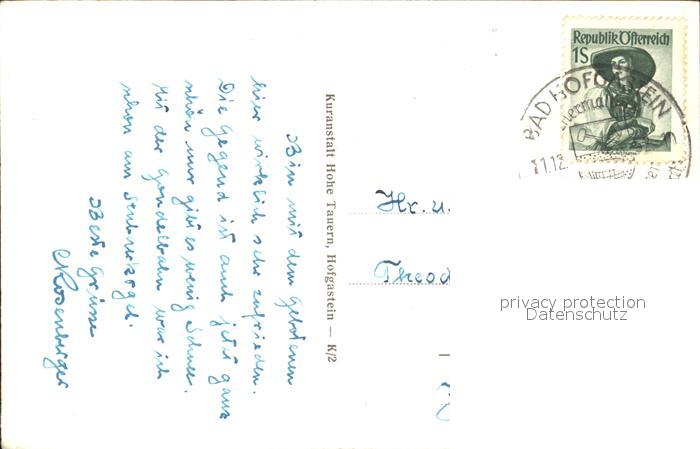 Bin mit dem Gebotenen
hier wirklich sehr zufrieden.
Die Gegend ist auch jetzt ganz
schön nur gibt es wenig Schnee.
Mit der Gondelbahn war ich
schon am
Beste Grüsse
Rosenberger
Kuranstalt Hohe Tauern, Hofgastein — K/2
Republik Österreich
1S
BAD HOFGASTEIN
11.12.
Hr. u.
Theod
privacy protection
Datenschutz